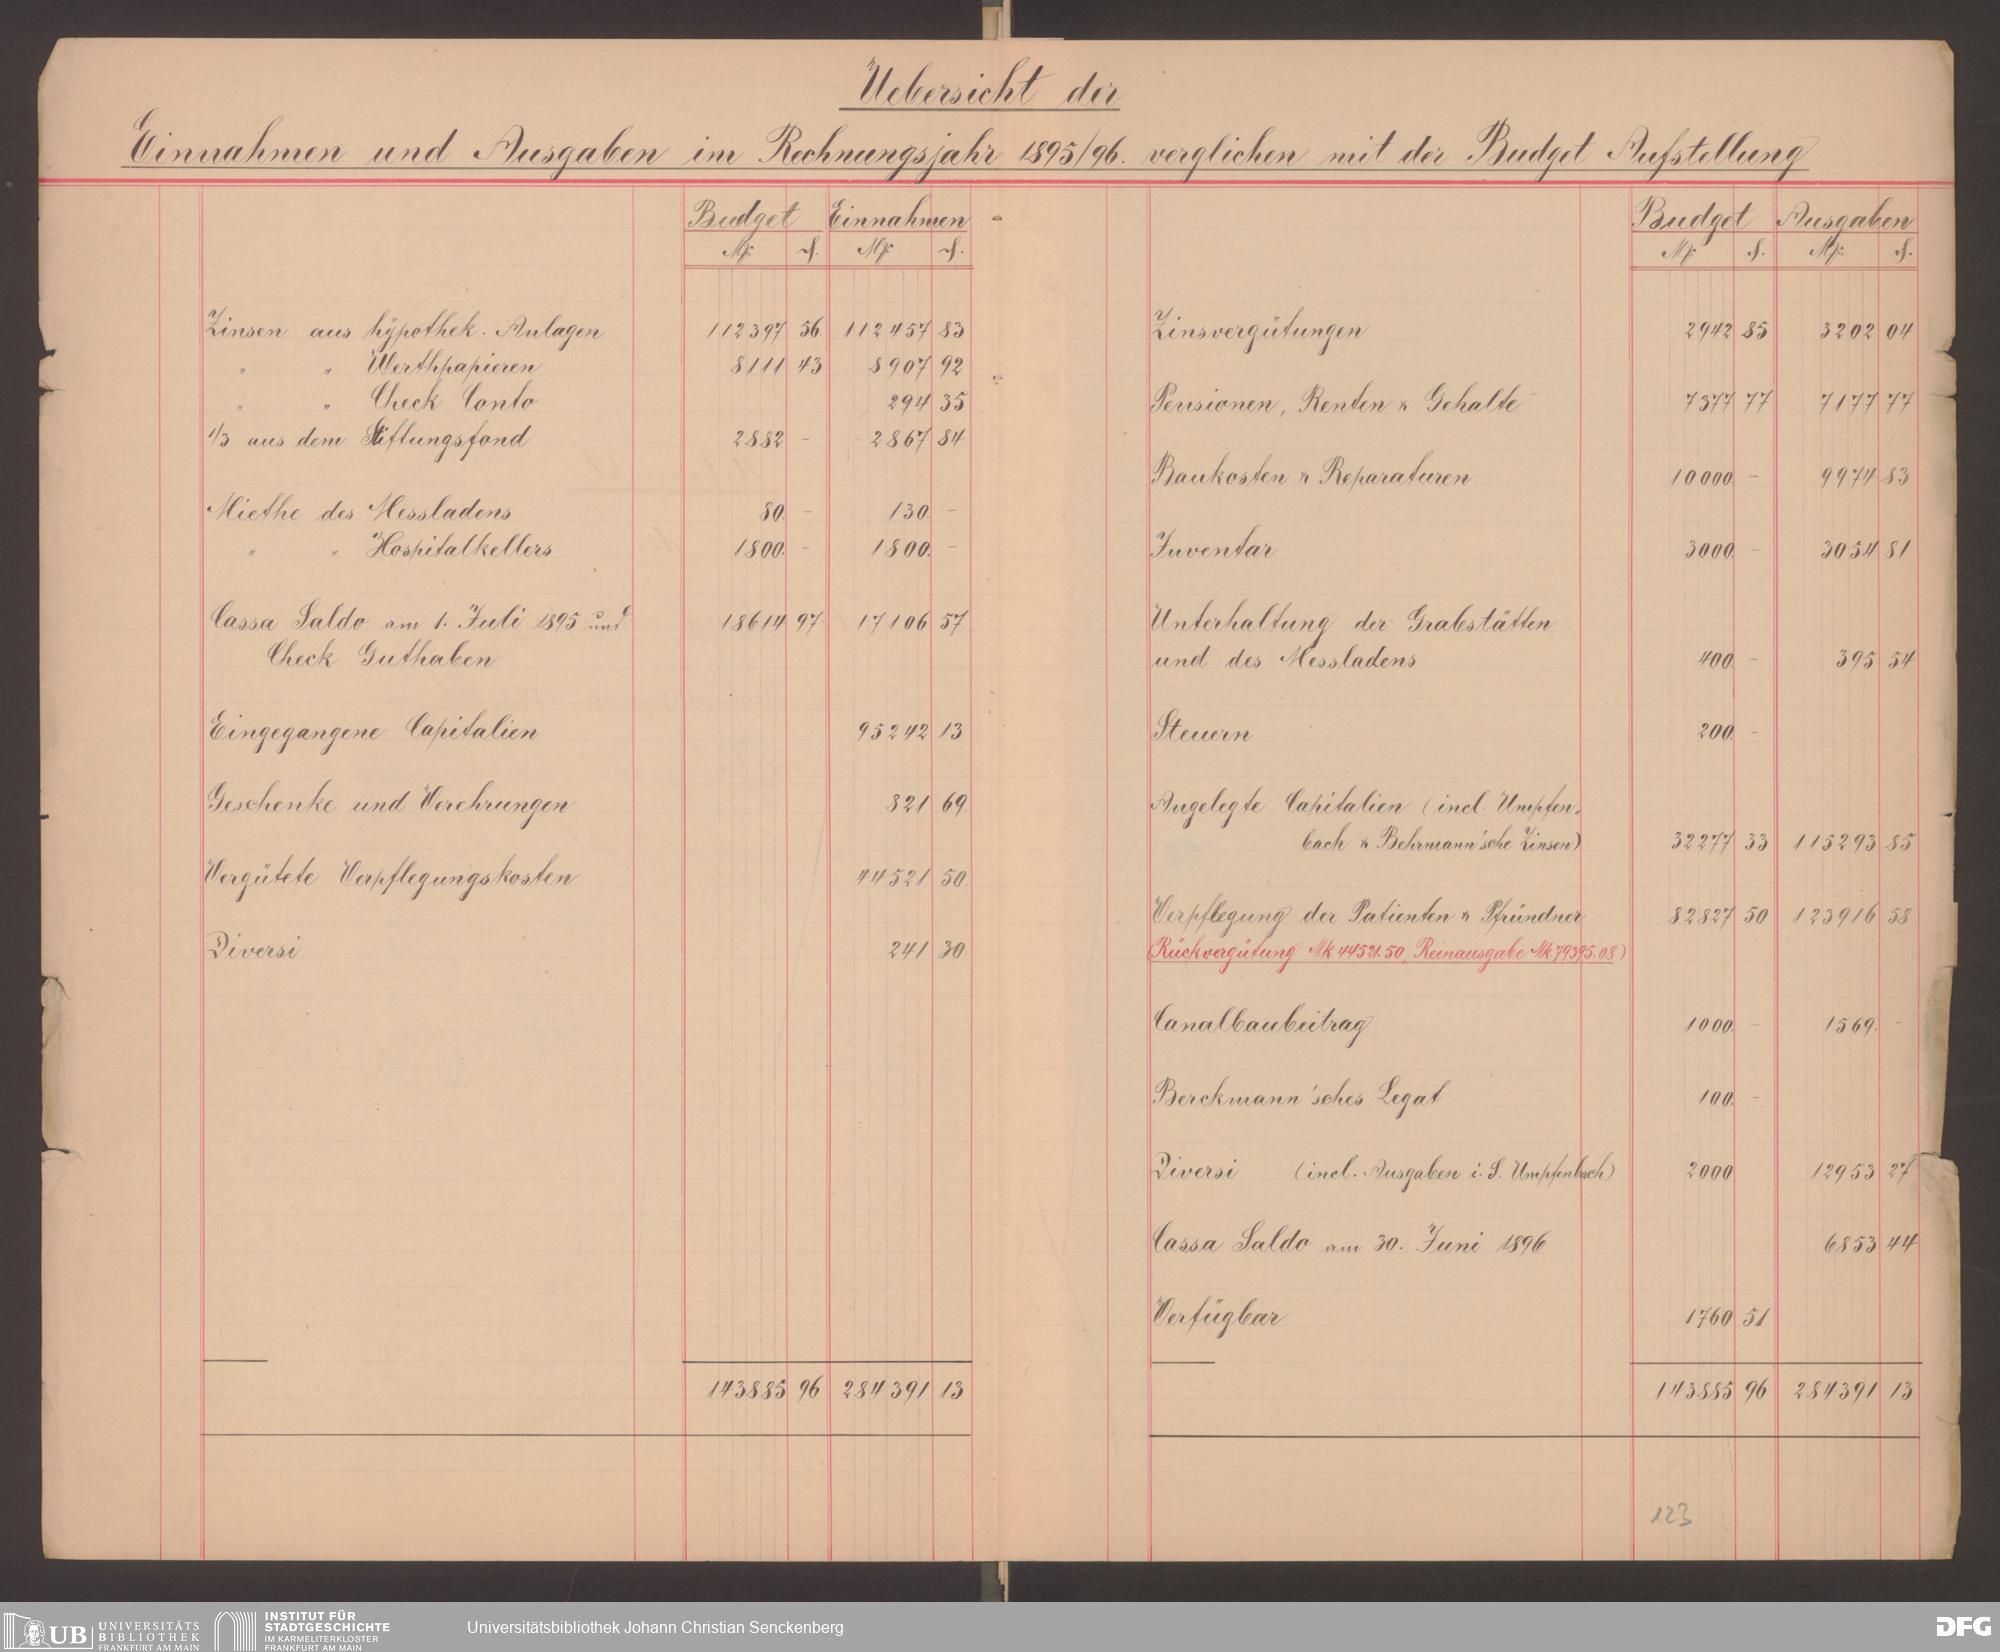 Uebersicht der
Einnahmen und Ausgaben im Rechnungsjahr 1895/96. verglichen mit der Budget Aufstellung
Budget Einnahmen
Mk. ₰. Mk. ₰.
Zinsen aus hypothek. Anlagen 112397 56 112457 83
" " Werthpapieren 8111 43 8907 92
" " Check Conto 294 35
1/3 aus dem Stiftungsfond 2882 – 2867 84
Miethe des Messladens 80. – 130. –
" " Hospitalkellers 1800. – 1800. –
Cassa Saldo am 1. Juli 1895 und 18614 97 17106 57
Check Guthaben
Eingegangene Capitalien 95242 13
Geschenke und Verehrungen 821 69
Vergütete Verpflegungskosten 44521 50.
Diversi 241 30.
143885 96 284391 13
Budget Ausgaben
Mk. ₰. Mk. ₰.
Zinsvergütungen 2942 85 3202 04
Pensionen, Renten & Gehalte 7377 77 7177 77
Baukosten & Reparaturen 10000. – 9974 83
Inventar 3000. – 3054 81
Unterhaltung der Grabstätten
und des Messladens 400. – 395 54
Steuern 200. –
Angelegte Capitalien (incl. Umpfen-
bach & Behrmann'sche Zinsen) 32277 33 115293 85
Verpflegung der Patienten & Pfründner 82827 50 123916 58
(Rückvergütung Mk. 44521.50, Reinausgabe Mk. 79395.08)
Canalbaubeitrag 1000. – 1569. –
Berckmann'sches Legat 100. –
Diversi (incl. Ausgaben i. S. Umpfenbach) 2000 12953 27
Cassa Saldo am 30. Juni 1896 6853 44
Verfügbar 1760 51
143885 96 284391 13
123
UB UNIVERSITÄTS
BIBLIOTHEK
FRANKFURT AM MAIN
INSTITUT FÜR
STADTGESCHICHTE
IM KARMELITERKLOSTER
FRANKFURT AM MAIN
Universitätsbibliothek Johann Christian Senckenberg
DFG